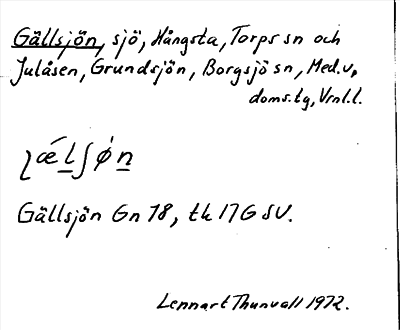 Gällsjön, sjö, Hångsta, Torps sn och
Julåsen, Grundsjön, Borgsjö sn, Med.v,
doms.tg, Vrnl.l.
ɩǽl̲ʃǿn̲
Gällsjön Gn 18, tk 17G SV.
Lennart Thunvall 1972.